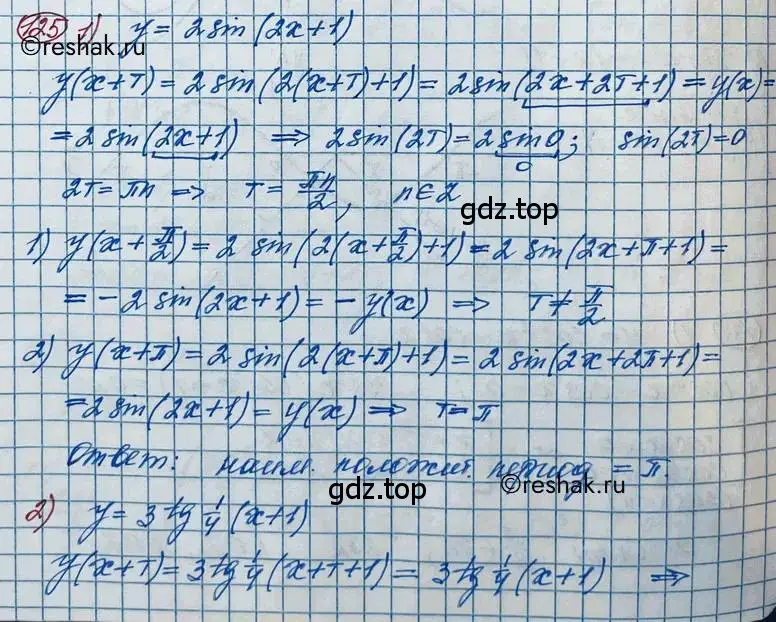 125 1) y = 2sin(2x+1)
©reshak.ru
y(x+T) = 2sin(2(x+T)+1) = 2sin(2x+2T+1) = y(x) =
= 2sin(2x+1) ⟹ 2sin(2T) = 2sin0; sin(2T)=0
0
2T = πn ⟹ T = πn/2, n∈Z
gdz.top
1) y(x+π/2) = 2 sin(2(x+π/2)+1) = 2 sin(2x+π+1) =
= -2 sin(2x+1) = -y(x) ⟹ T ≠ π/2
2) y(x+π) = 2 sin(2(x+π)+1) = 2 sin(2x+2π+1) =
= 2sin(2x+1) = y(x) ⟹ T = π
Ответ: наим. положит. период = π.
gdz.top ©reshak.ru
2) y = 3 tg 1/4 (x+1)
y(x+T) = 3tg 1/4 (x+T+1) = 3tg 1/4 (x+1) ⟹